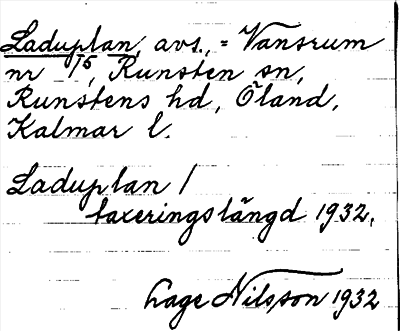 Laduplan, avs., = Vansrum
nr 15, Runsten sn,
Runstens hd, Öland,
Kalmar l.
Laduplan /
taxeringslängd 1932.
Lage Nilsson 1932